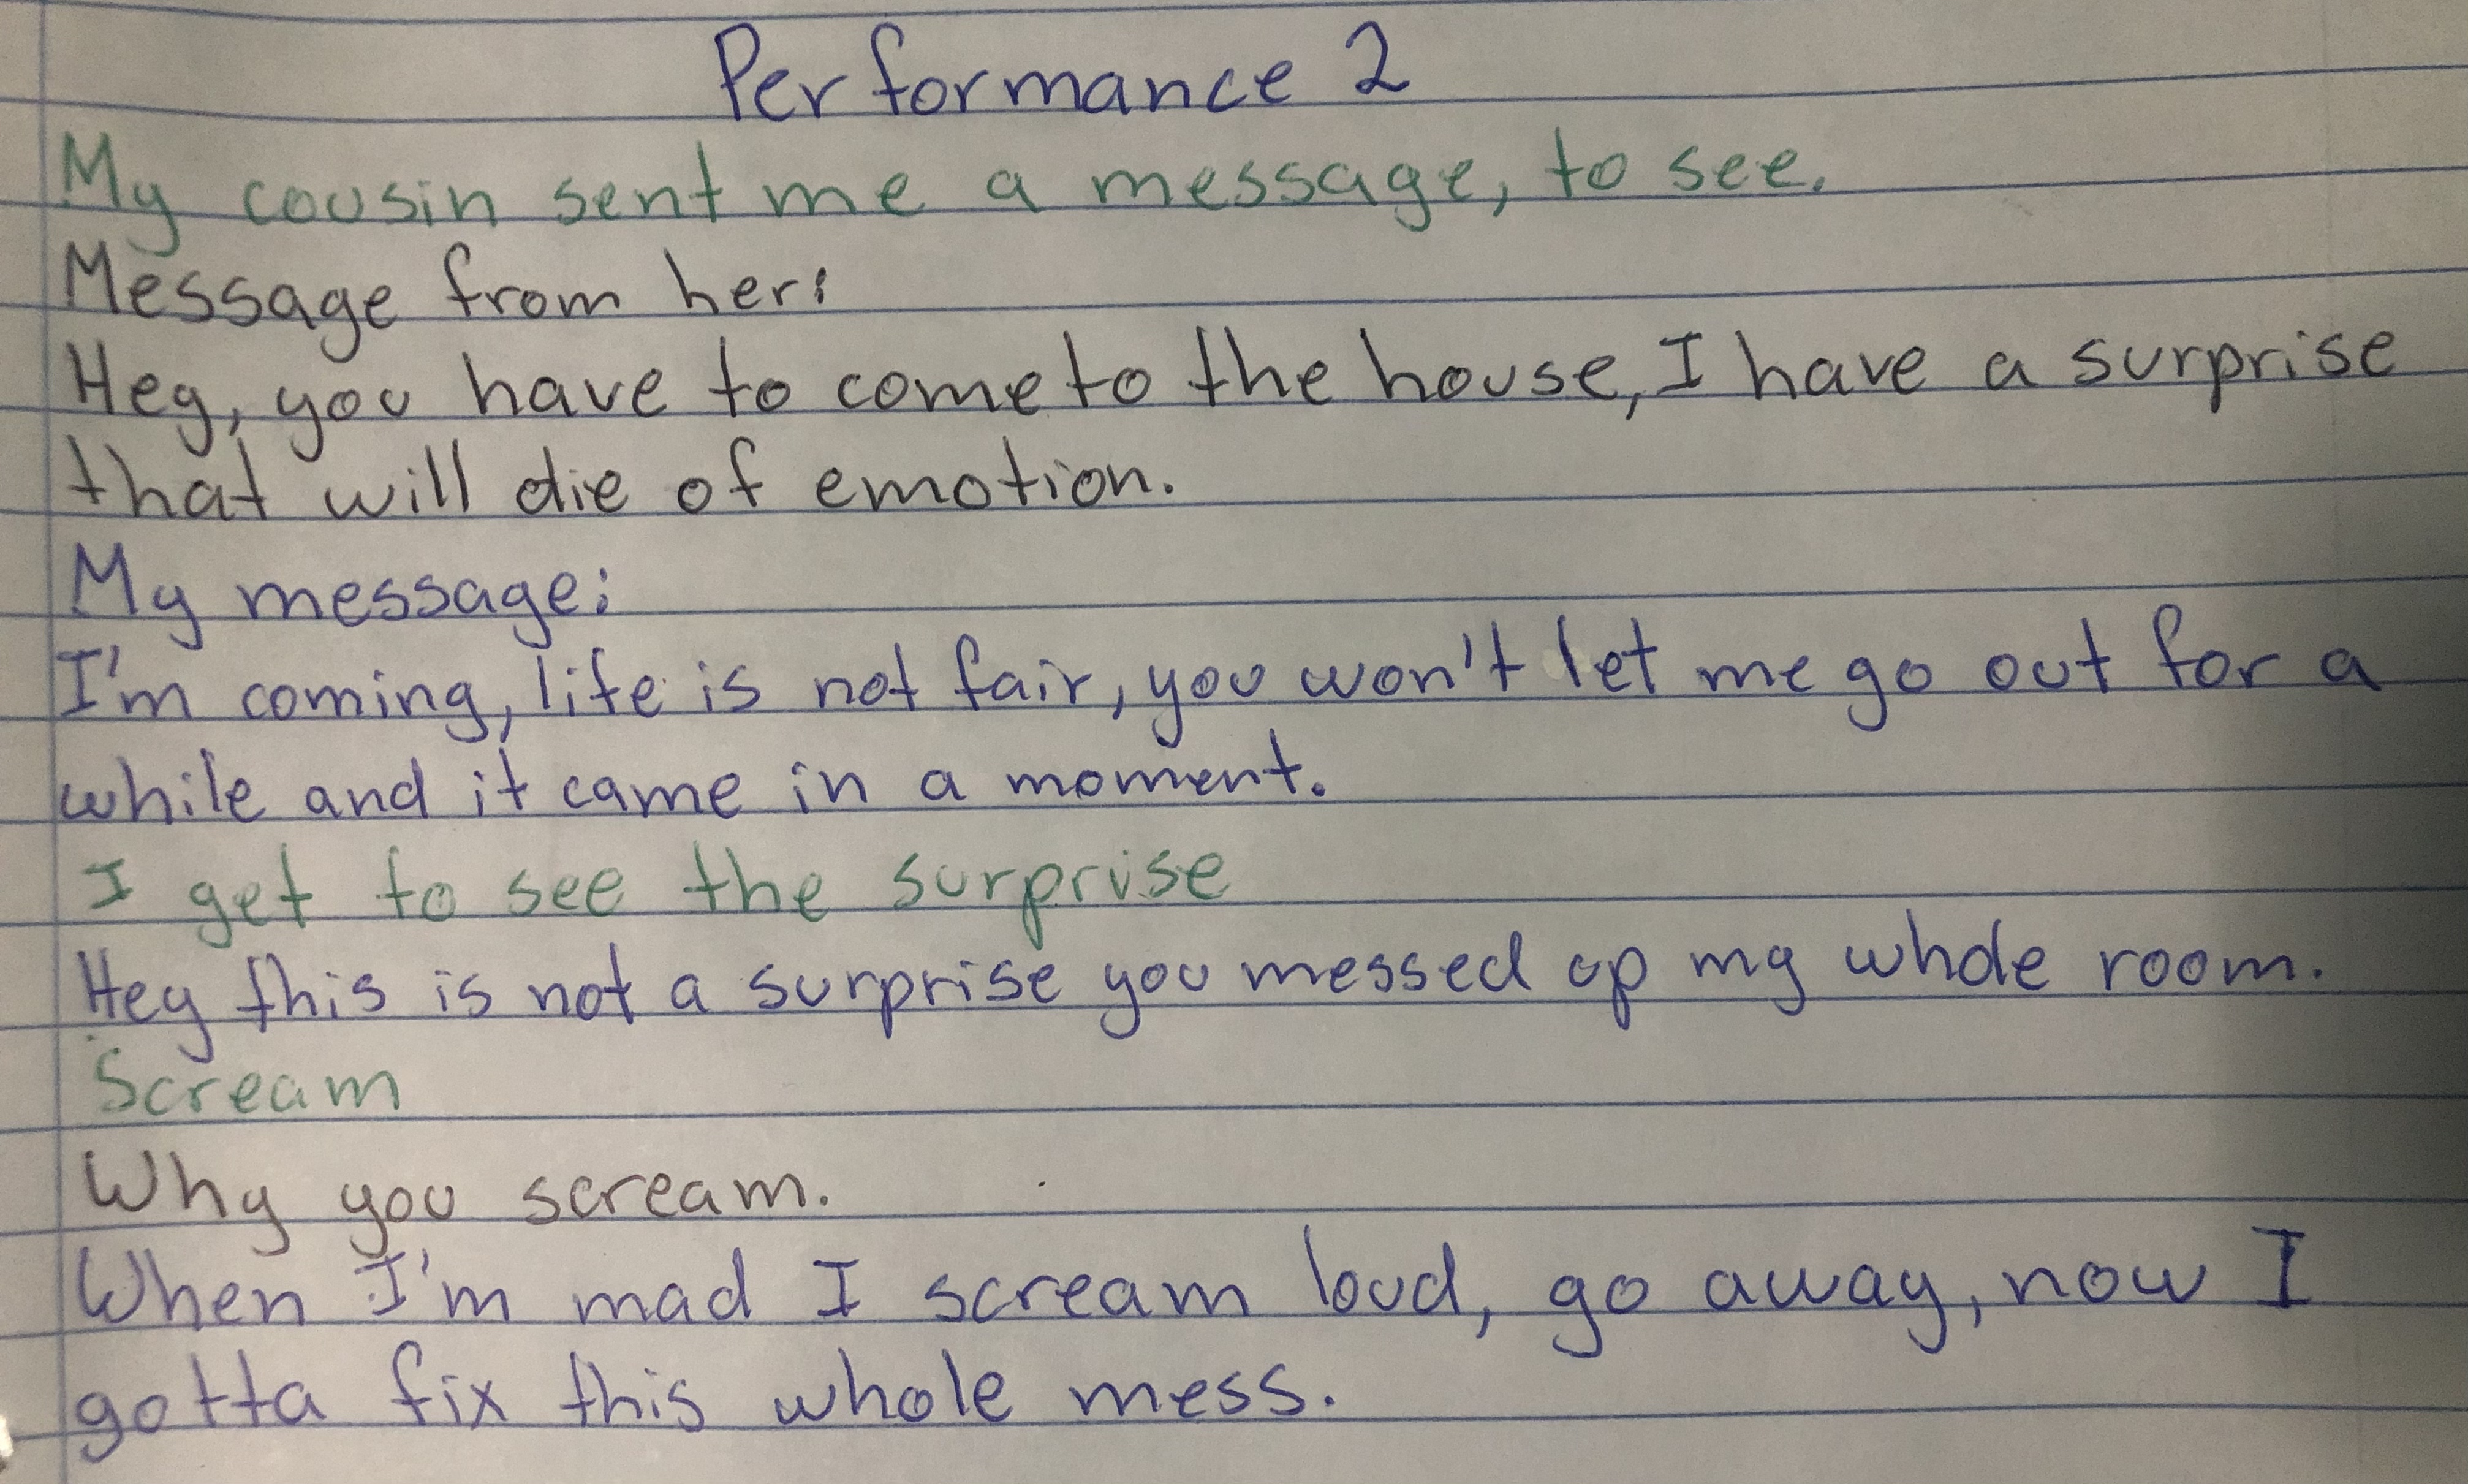 Performance 2
My cousin sent me a message, to see.
Message from her:
Hey, you have to come to the house, I have a surprise
that will die of emotion.
My message:
I'm coming, life is not fair, you won't let me go out for a
while and it came in a moment.
I get to see the surprise
Hey this is not a surprise you messed up my whole room.
Scream
Why you scream.
When I'm mad I scream loud, go away, now I
gotta fix this whole mess.